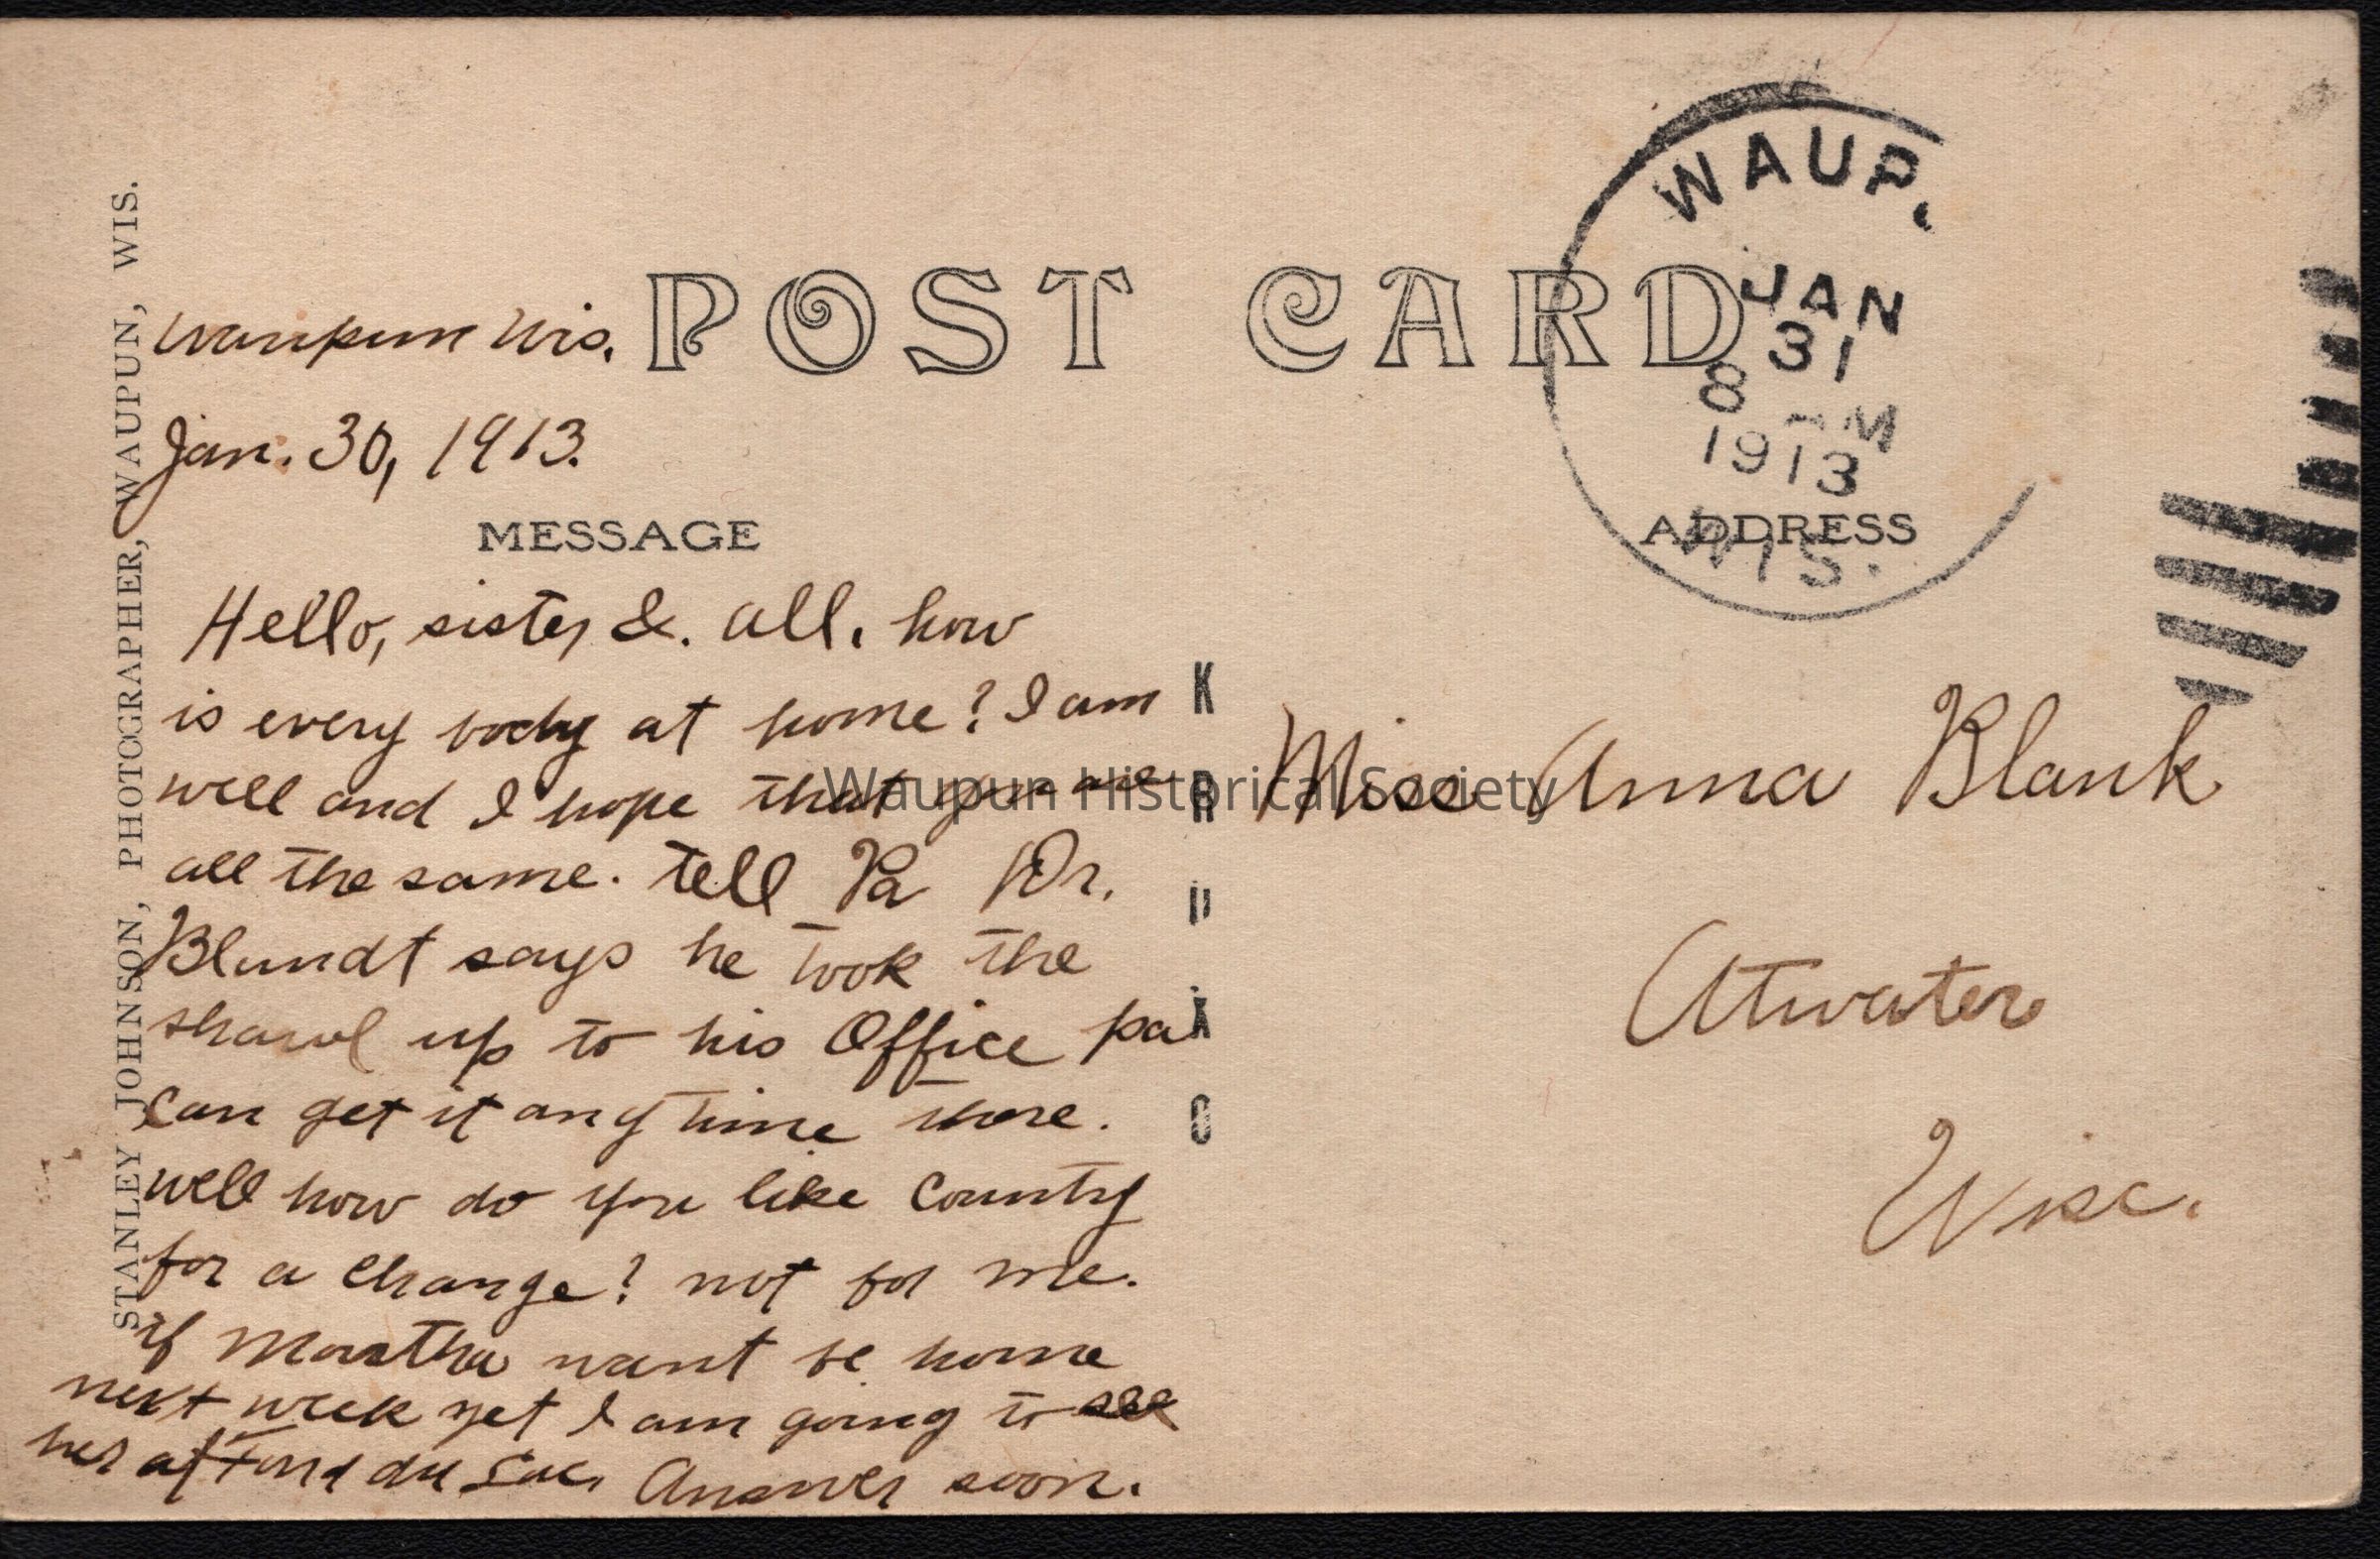 STANLEY JOHNSON, PHOTOGRAPHER, WAUPUN, WIS.
POST CARD
WAUP
JAN
31
8 AM
1913
WIS.
Waupun Wis.
Jan. 30, 1913.
MESSAGE
Hello, sister &. all. how
is every body at home? I am
well and I hope that you are
all the same. tell Pa Dr.
Blundt says he took the
shawl up to his Office pa
can get it any time there.
well how do you like County
for a change? not for me.
if Martha want be home
next week yet I am going to see
her at Fond du Lac. Answer soon.
K
R
U
X
O
ADDRESS
Miss Anna Blank
Atwater
Wisc.
Waupun Historical Society